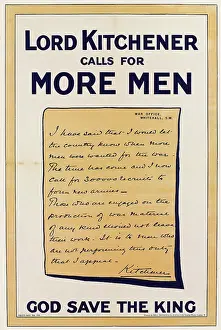 LORD KITCHENER
CALLS FOR
MORE MEN
WAR OFFICE,
WHITEHALL, S.W.
I have said that I would let
the country know when more
men were wanted for the war.
The time has come and I now
call for 300000 recruits to
form new armies—
Those who are engaged on the
production of war material
of any kind should not leave
their work. It is to men who
are not performing this duty
that I appeal.
Kitchener
GOD SAVE THE KING